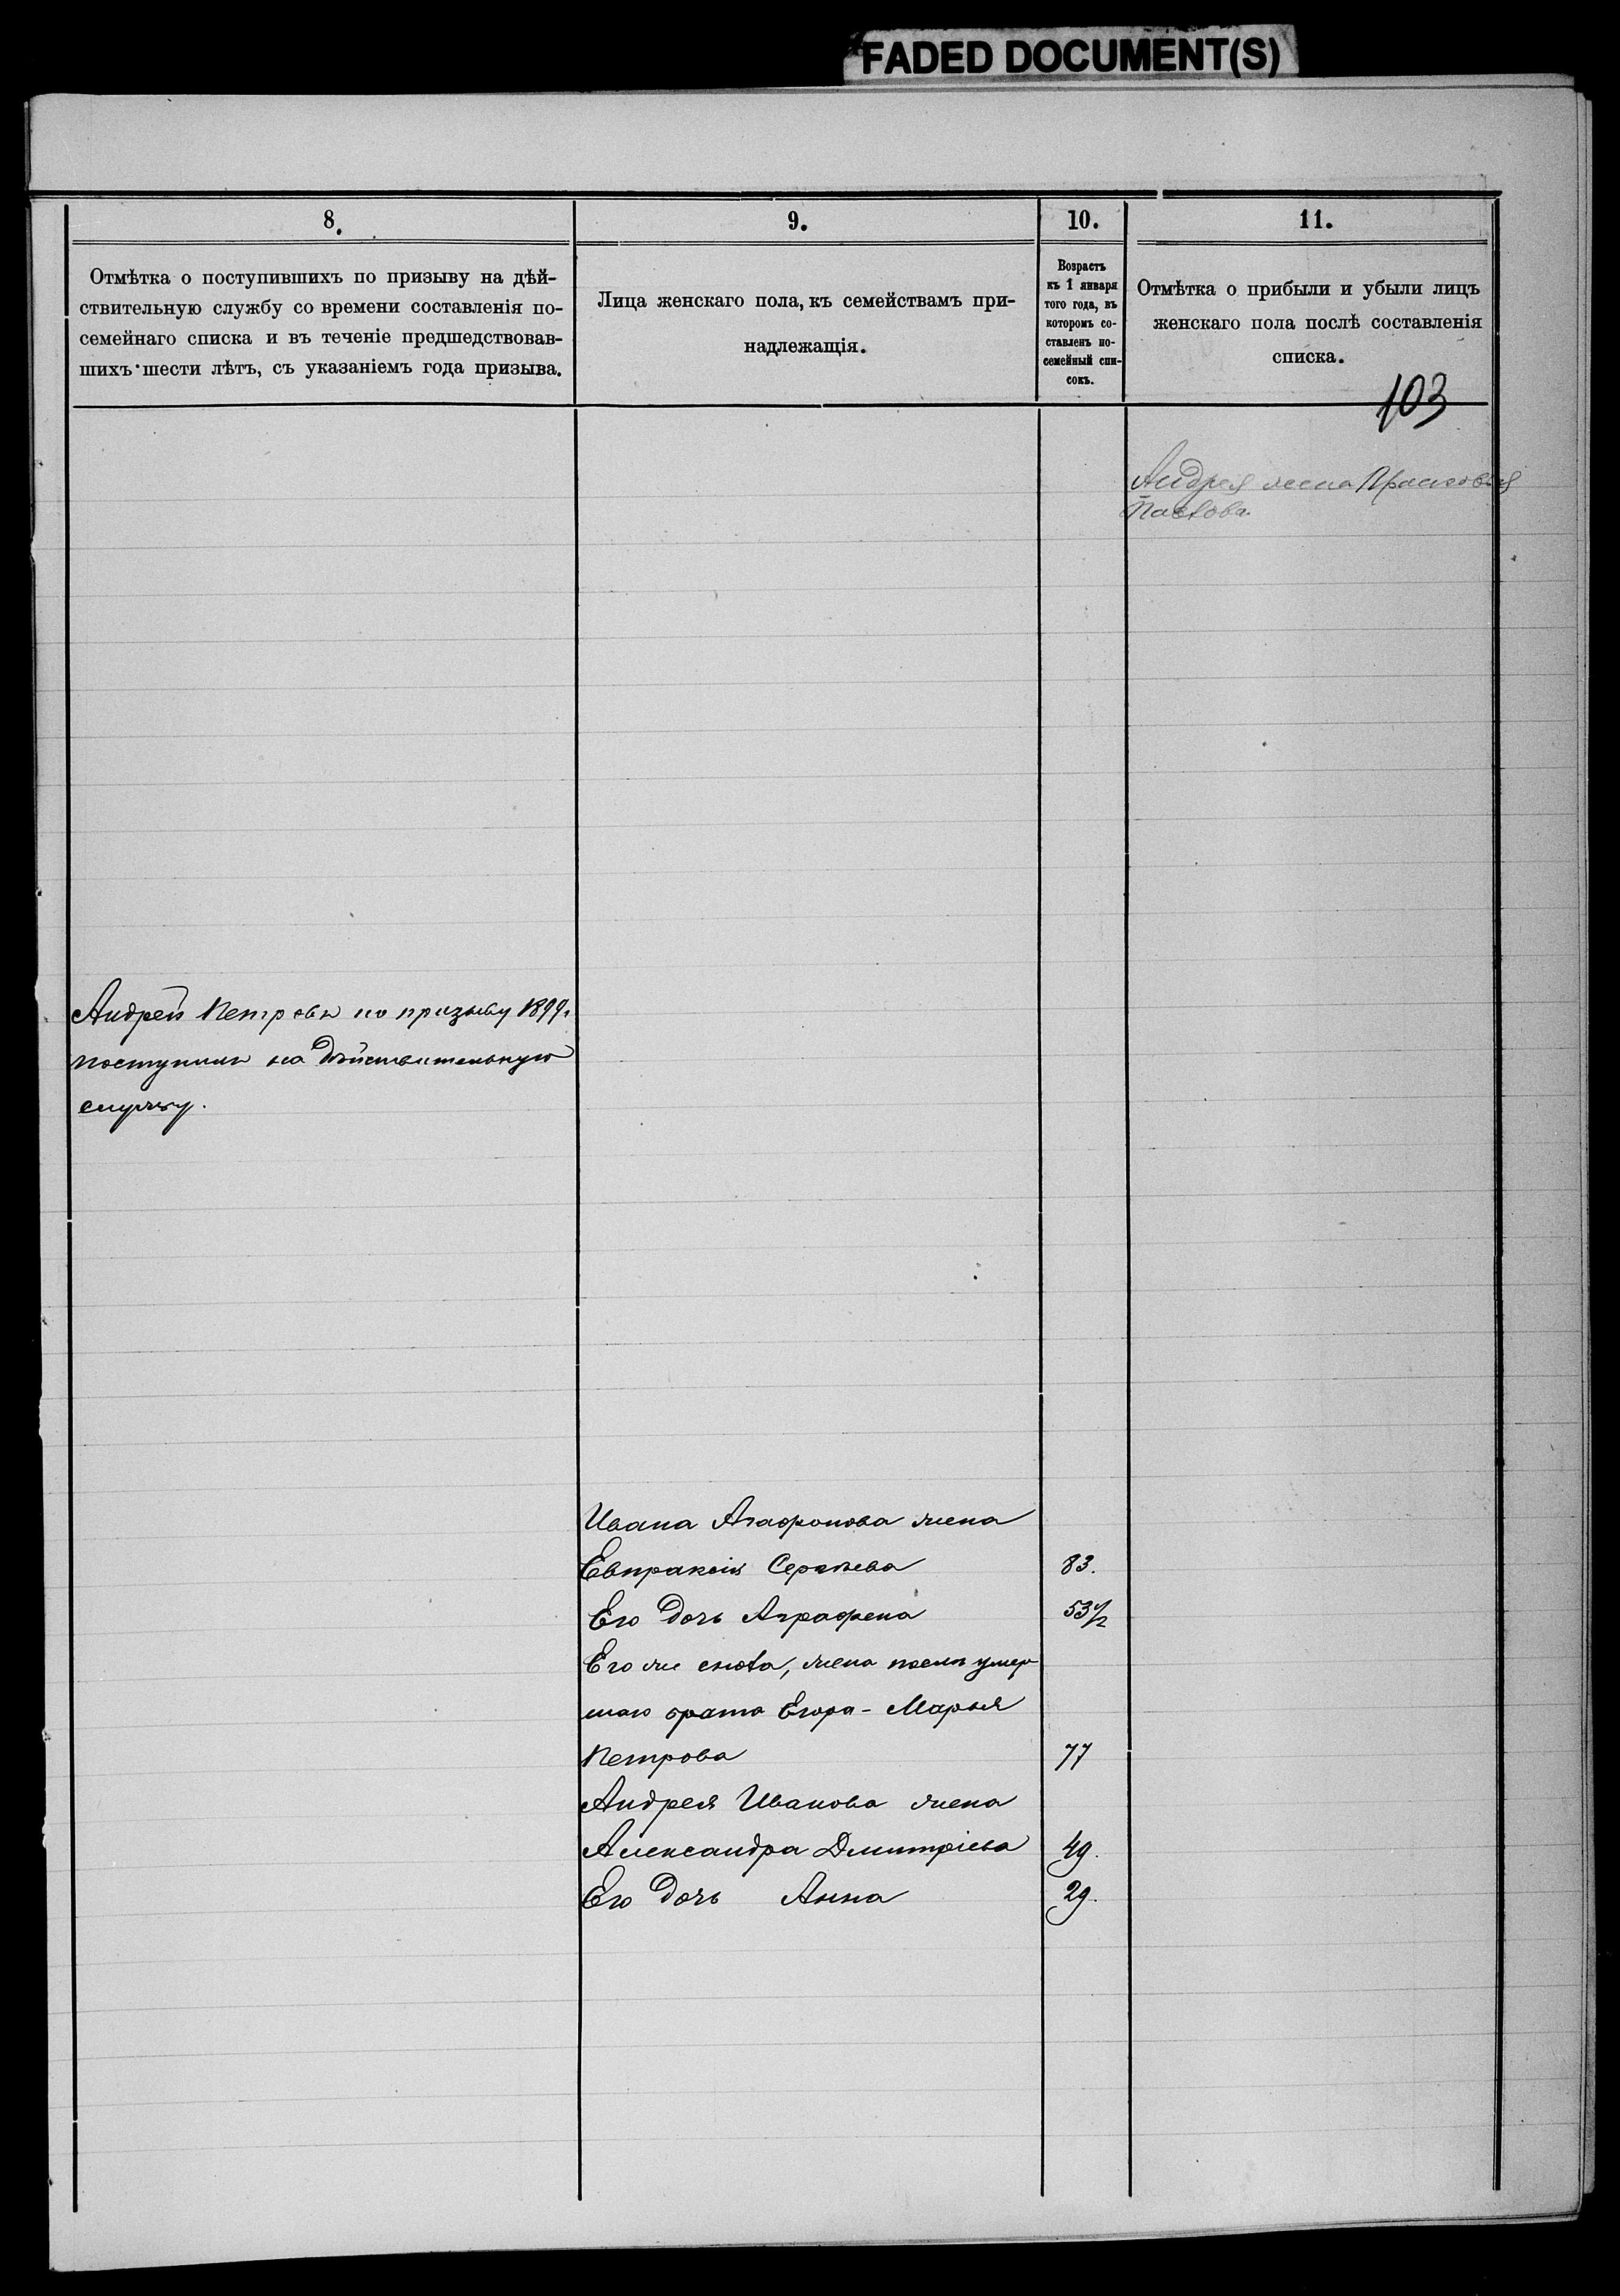 FADED DOCUMENT(S)
8.
Отмѣтка о поступившихъ по призыву на дѣй-
ствительную службу со времени составленія по-
семейнаго списка и въ теченіе предшедствовав-
шихъ шести лѣтъ, съ указаніемъ года призыва.
9.
Лица женскаго пола, къ семействамъ при-
надлежащія.
10.
Возрастъ
къ 1 января
того года, въ
которомъ со-
ставленъ по-
семейный спи-
сокъ.
11.
Отмѣтка о прибыли и убыли лицъ
женскаго пола послѣ составленія
списка.
103
Андрея жена Прасковья
Павлова.
Андрей Петровъ по призыву 1899г.
поступилъ на дѣйствительную
службу.
Ивана Агафонова жена
Евпраксія Сергѣева 83.
Его дочь Аграфена 53 1/2
Его же сноха, жена послѣ умер
шаго брата Егора - Марья
Петрова 77
Андрея Иванова жена
Александра Дмитріева 49.
Его дочь Анна 29.